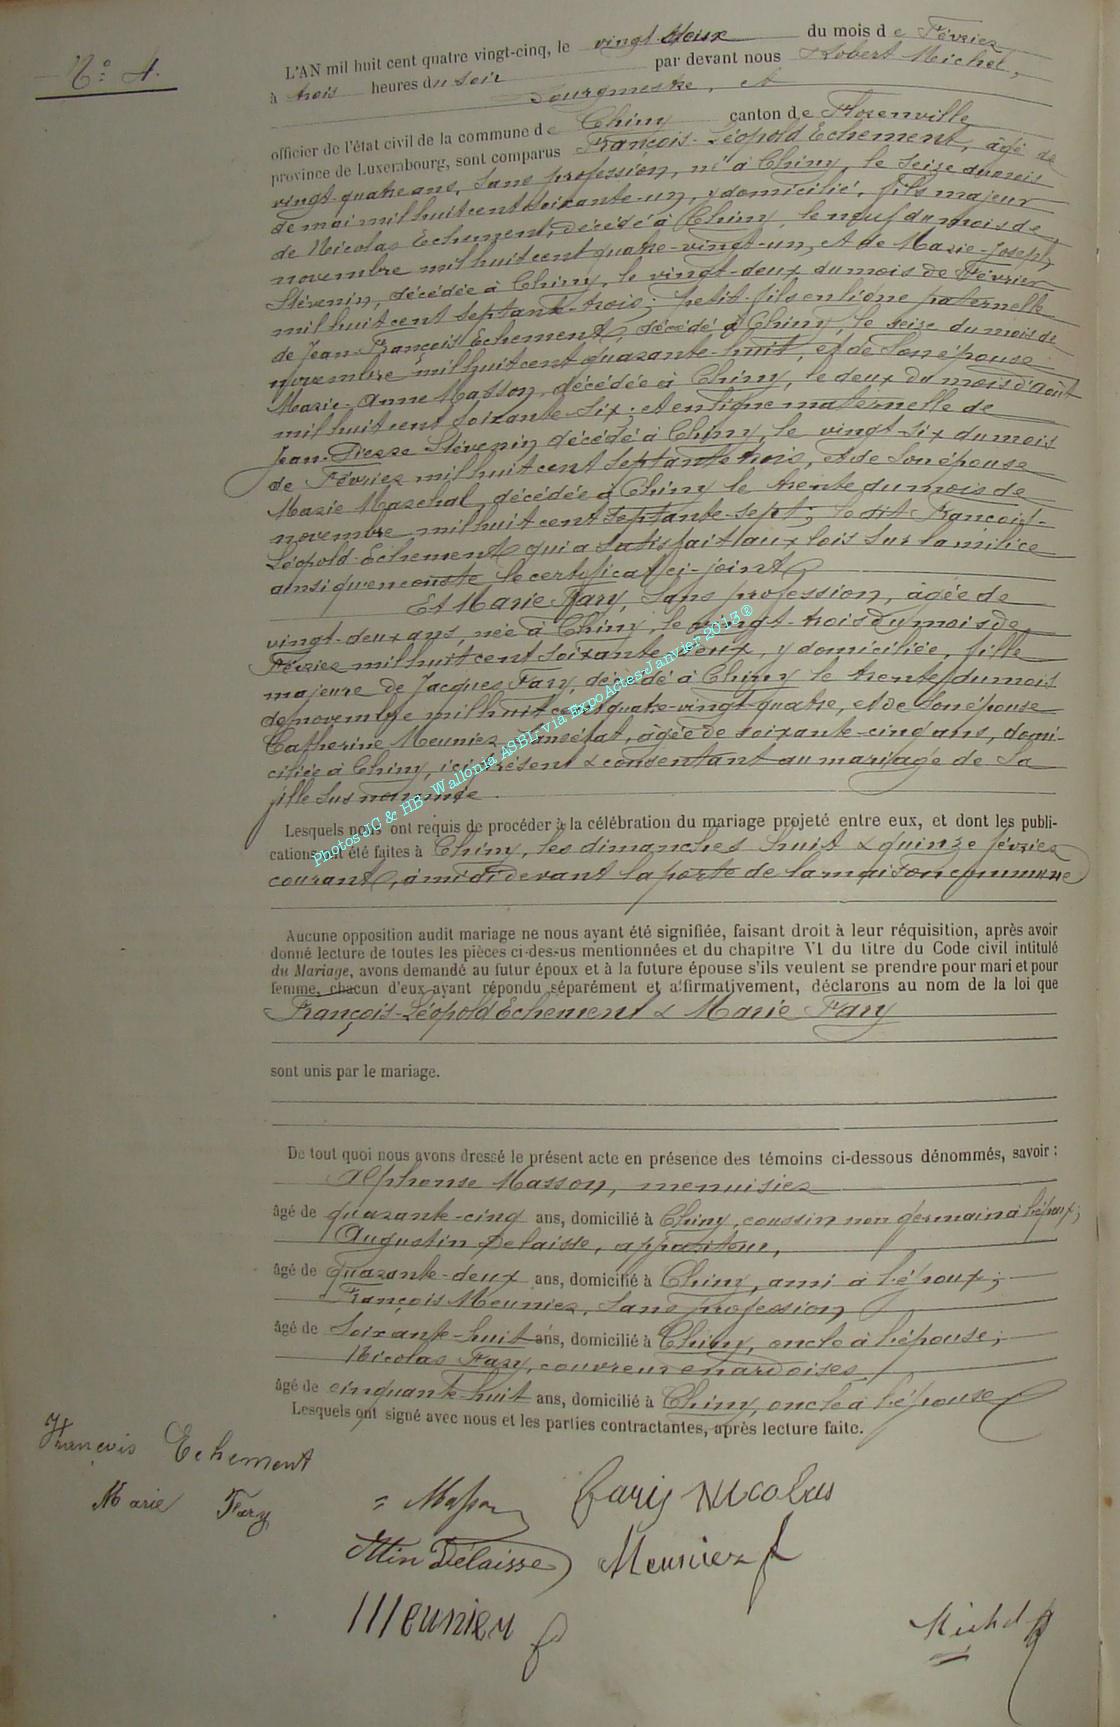 N° 4.
L'AN mil huit cent quatre vingt-cinq, le vingt-deux du mois de Février
à trois heures du soir par devant nous Robert Michel,
Bourgmestre, et
officier de l'état civil de la commune de Chiny canton de Florenville
province de Luxembourg, sont comparus François-Léopold Echement, âgé de
vingt-quatre ans, sans profession, né à Chiny, le seize du mois
de mai mil huit cent soixante-un, y domicilié, fils majeur
de Nicolas Echement, décédé à Chiny, le neuf du mois de
novembre mil huit cent quatre-vingt-un, et de Marie-Joseph
Stévenin, décédée à Chiny, le vingt-deux du mois de Février
mil huit cent septante-trois; petit-fils en ligne paternelle
de Jean-François Echement, décédé à Chiny, le seize du mois de
novembre mil huit cent quarante-huit, et de son épouse
Marie-Anne Masson, décédée à Chiny, le deux du mois d'août
mil huit cent soixante-six; et en ligne maternelle de
Jean-Pierre Stévenin, décédé à Chiny, le vingt-six du mois
de Février mil huit cent septante trois, et de son épouse
Marie Marchal, décédée à Chiny le trente du mois de
novembre mil huit cent septante-sept; le dit François-
Léopold Echement qui a satisfait aux lois sur la milice
ainsi qu'en conste le certificat ci-joint
Et Marie Fary, sans profession, âgée de
vingt-deux ans, née à Chiny, le vingt-trois du mois de
Février mil huit cent soixante-deux, y domiciliée, fille
majeure de Jacques Fary, décédé à Chiny le trente du mois
de novembre mil huit cent quatre-vingt-quatre, et de son épouse
Catherine Meunier, sans état, âgée de soixante-cinq ans, domi-
ciliée à Chiny, ici présent & consentant au mariage de sa
fille susnommée.
Photos JG & HB - Wallonia ASBL, via ExpoActes Janvier 2013®
Lesquels nous ont requis de procéder à la célébration du mariage projeté entre eux, et dont les publi-
cations ont été faites à Chiny, les dimanches huit & quinze février
courant, à midi devant la porte de la maison commune
Aucune opposition audit mariage ne nous ayant été signifiée, faisant droit à leur réquisition, après avoir
donné lecture de toutes les pièces ci-dessus mentionnées et du chapitre VI du titre du Code civil intitulé
du Mariage, avons demandé au futur époux et à la future épouse s'ils veulent se prendre pour mari et pour
femme, chacun d'eux ayant répondu séparément et affirmativement, déclarons au nom de la loi que
François-Léopold Echement & Marie Fary
sont unis par le mariage.
De tout quoi nous avons dressé le présent acte en présence des témoins ci-dessous dénommés, savoir:
Alphonse Masson, menuisier
âgé de quarante-cinq ans, domicilié à Chiny, coussin non germain à l'époux;
Augustin Delaisse, appariteur,
âgé de quarante-deux ans, domicilié à Chiny, ami à l'époux;
François Meunier, sans profession,
âgé de soixante-huit ans, domicilié à Chiny, oncle à l'épouse;
Nicolas Fary, couvreur en ardoises
âgé de cinquante-huit ans, domicilié à Chiny, oncle à l'épouse
Lesquels ont signé avec nous et les parties contractantes, après lecture faite.
François Echement
Marie Fary
Masson
farij Nicolas
Delaisse
Meunier f
Meunier
Michel